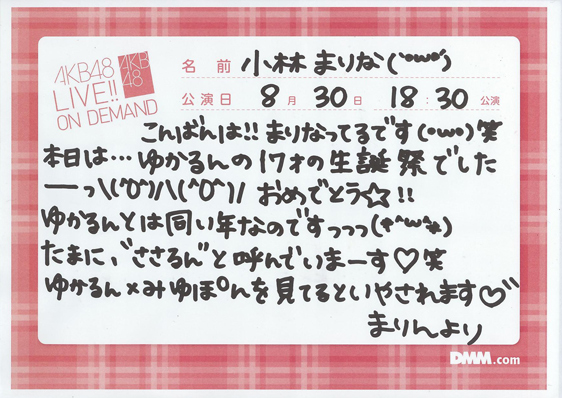 AKB48
LIVE!!
ON DEMAND
AKB
48
名前 小林 まりな(`･ω･´)
公演日 8月 30日 18:30 公演
こんばんは!! まりなってるです(・ω・)笑
本日は…ゆかるんの17才の生誕祭でした
ーっ\(^O^)/\(^O^)/ おめでとう☆!!
ゆかるんとは同い年なのですっっっ(*^ω^*)
たまに、"ささるん"と呼んでいまーす♡笑
ゆかるん×みゆぽんを見てるといやされます♡
まりんより
DMM.com